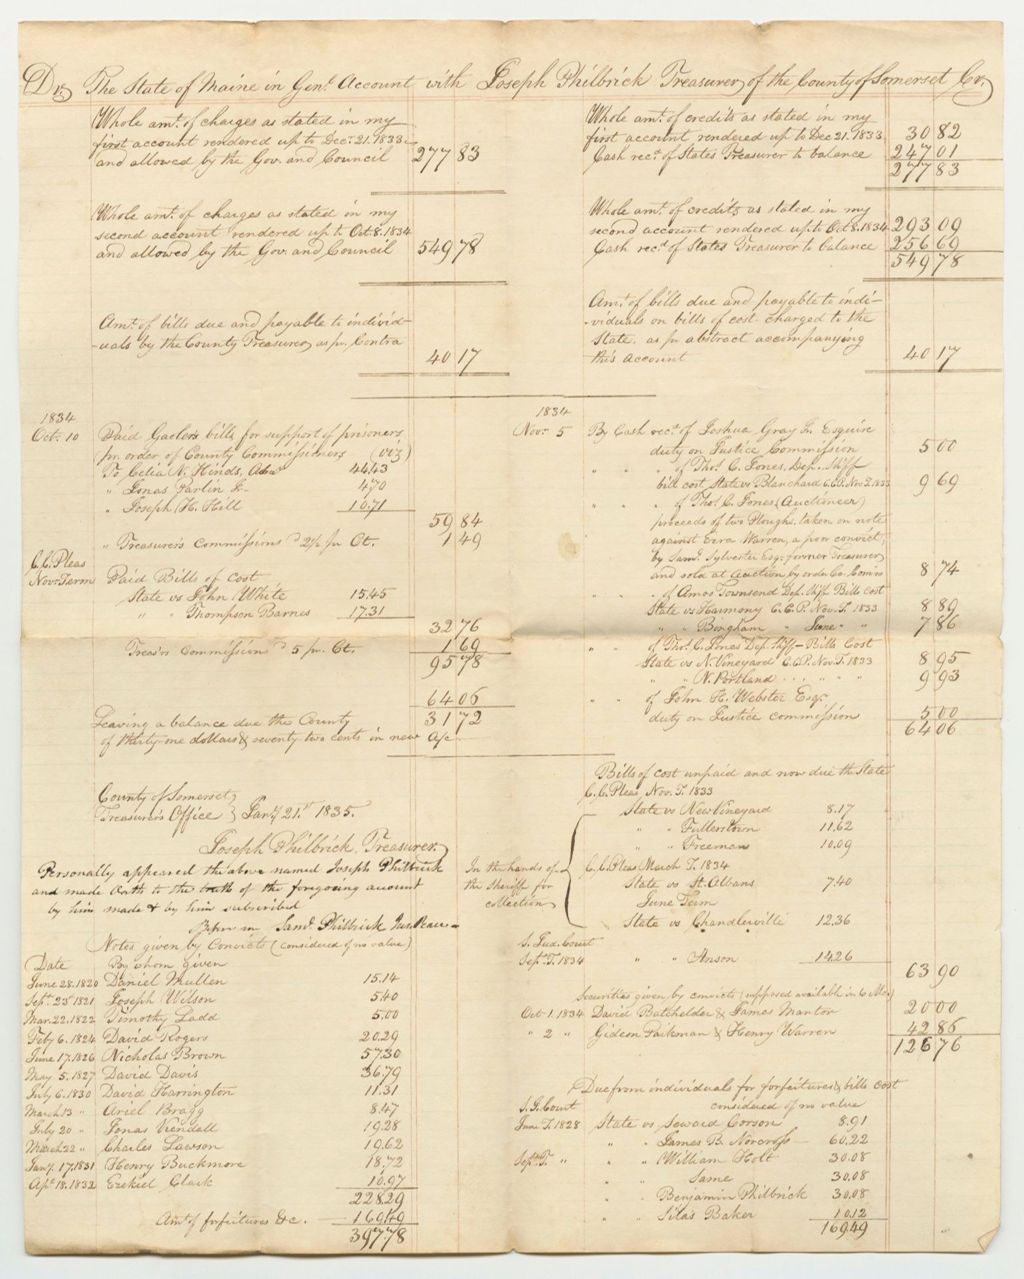 Dr. The State of Maine in Genl. Account with Joseph Philbrick Treasurer of the County of Somerset Cr.
Whole amt. of charges as stated in my
first account rendered up to Dec. 21. 1833
and allowed by the Gov. and Council 277 83
Whole amt. of charges as stated in my
second account rendered up to Oct. 8. 1834
and allowed by the Gov. and Council 549 78
Amt. of bills due and payable to individ-
-uals by the County Treasurer, as pr. Contra
40 17
1834
Oct. 10 Paid Gaolers bills for support of prisoners
pr. order of County Commissioners (viz)
To Celia N. Hinds, Adx 44.43
" Jonas Parlin Jr. 4.70
" Joseph H. Hill 10.71
59 84
" Treasurers Commissions 2½ pr Ct. 1 49
C.C. Pleas
Nov. Term Paid Bills of Cost
State vs John White 15.45
" " Thompson Barnes 17.31
32 76
Treas'rs Commission 5 pr. Ct. 1 69
95 78
64 06
Leaving a balance due the County 31 72
of thirty one dollars & seventy two cents in new a/c
County of Somerset
Treasurer's Office } Jany. 21st 1835.
Joseph Philbrick, Treasurer.
Personally appeared the above named Joseph Philbrick
and made Oath to the truth of the foregoing account
by him made & by him subscribed
Before me Saml. Philbrick Jus. Peace
Notes given by Convicts (considered of no value)
Date By whom given
June 28. 1820 Daniel Mullen 15.14
Sept. 25 1821 Joseph Wilson 5.40
Mar. 22. 1822 Timothy Ladd 5.00
Feby 6. 1824 David Rogers 20.29
June 17. 1826 Nicholas Brown 57.30
May 5. 1827 David Davis 36.79
July 6. 1830 David Harrington 11.31
March 13 " Ariel Bragg 8.47
July 20 " Jonas Kendall 19.28
March 22 " Charles Lawson 10.62
Jany. 17. 1831 Henry Buckmore 18.72
Apl. 18. 1832 Ezekiel Clark 10.97
228.29
Amt. of forfeitures &c. 169.49
397.78
Whole amt. of credits as stated in my
first account rendered up to Dec 21. 1833 30 82
Cash recd. of States Treasurer to balance 247 01
277 83
Whole amt. of credits as stated in my
second account rendered up to Oct. 8. 1834 293 09
Cash recd. of States Treasurer to balance 256 69
549 78
Amt. of bills due and payable to indi-
-viduals on bills of cost charged to the
State, as pr abstract accompanying
this account 40 17
1834
Nov. 5 By Cash recd. of Joshua Gray Jr. Esquire
duty on Justice Commission 5 00
" " of Thos. C. Jones, Dep. Shff
bill cost State vs Blanchard C.C.P. Nov. T. 1833 9 69
" " of Thos. C. Jones (Auctioneer)
proceeds of two Ploughs, taken on note
against Ezra Warren, a poor convict,
by Saml. Sylvester Esq. former Treasurer
and sold at Auction by order Co. Com'rs 8 74
" " of Amos Townsend Dep. Shff. Bills cost
State vs Harmony C.C.P. Nov. T. 1833 8 89
" " Bingham " June " " 7 86
" " of Thos. C. Jones Dep. Shff - Bills Cost
State vs N. Vineyard C.C.P. Nov. T. 1833 8 95
" " N. Portland " " " 9 93
" " of John H. Webster Esqr.
duty on Justice commission 5 00
64 06
Bills of cost unpaid and now due the State
C.C. Pleas, Nov. T. 1833
State vs New Vineyard 8.17
" " Fullerstown 11.62
" " Freeman 10.09
In the hands of
the sheriff for
collection
C.C. Pleas March T. 1834
State vs St. Albans 7.40
June Term
State vs Chandlerville 12.36
S. Jud. Court
Sept. T. 1834 " " Anson 14.26
63 90
Securities given by convicts (supposed available in 6 Mo.)
Oct. 1. 1834 David Batchelder & James Mantor 20 00
" 2 " Gideon Parkman & Henry Warren 42 86
126 76
Due from individuals for forfeitures & bills cost
considered of no value
S. J. Court
June T. 1828 State vs Seward Corson 8.91
" " James B. Norcross 60.22
Sept. T. " " " William Holt 30.08
" " Same 30.08
" " Benjamin Philbrick 30.08
" " Silas Baker 10.12
169.49